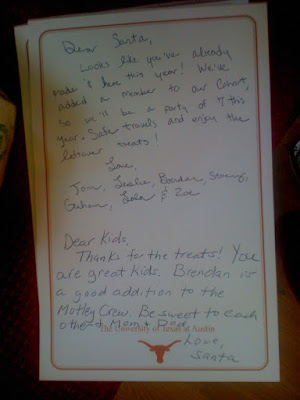 Dear Santa,
Looks like you've already
made it here this year! We've
added a member to our Cohort,
so we'll be a party of 7 this
year. Safe travels and enjoy the
leftover treats!
Love,
Tom, Leslie, Brendan,
Graham, & Zoe
Dear Kids,
Thanks for the treats! You
are great kids. Brendan is
a good addition to the
Motley Crew. Be sweet to each
other & Mom & Dad.
The University of Texas at Austin
Love,
Santa